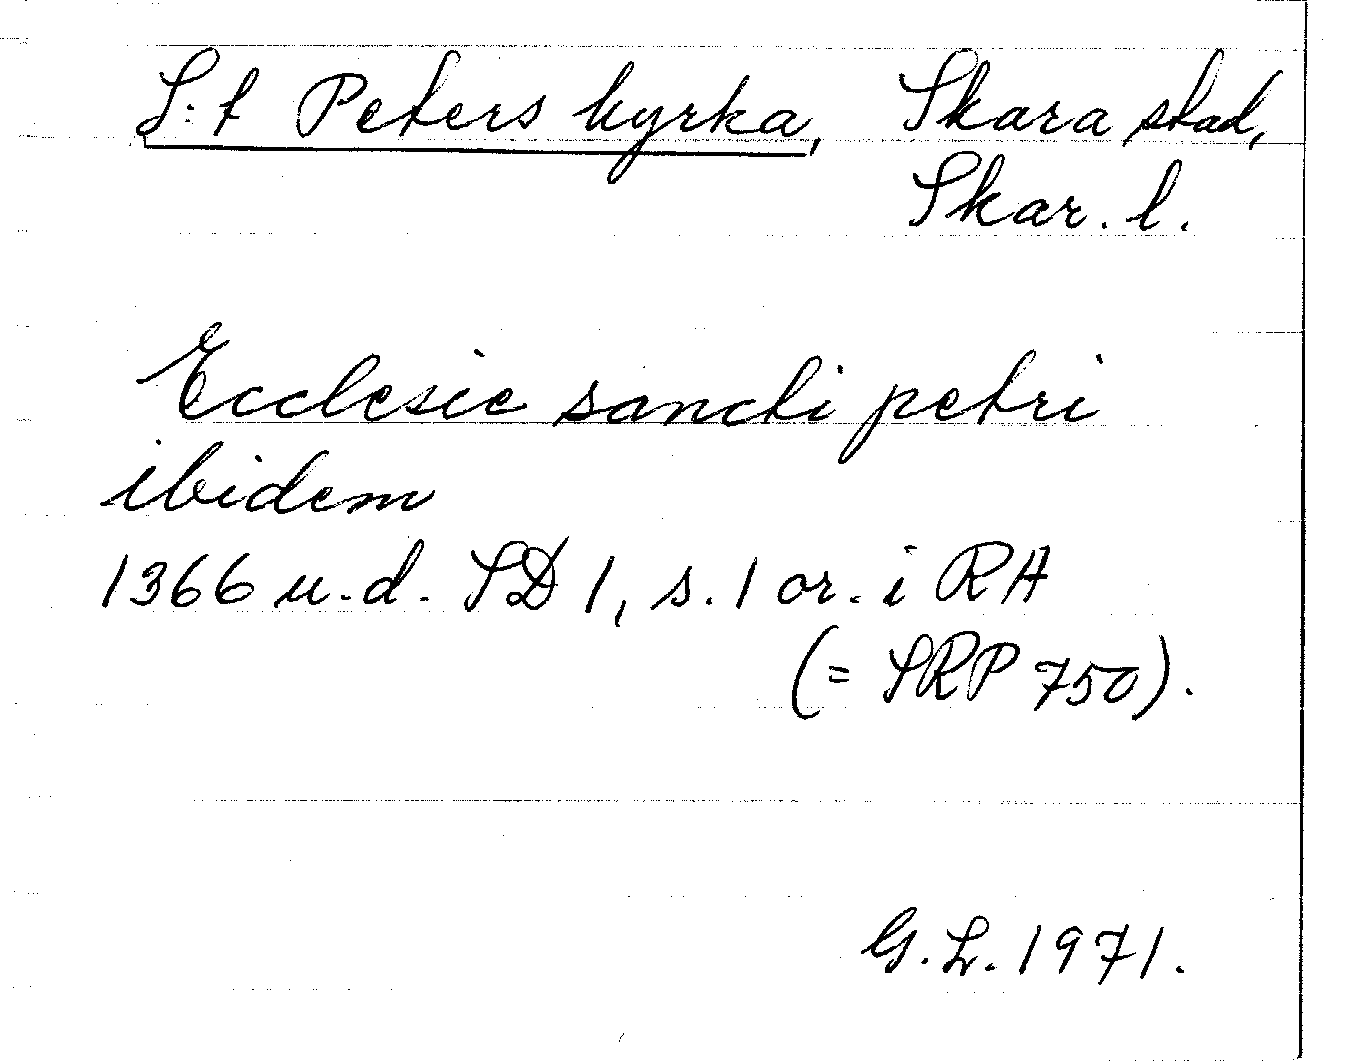 S:t Peters kyrka, Skara stad,
Skar. l.
Ecclesie sancti petri
ibidem
1366 u.d. SD 1, s. 1 or. i RA
(= SRP 750).
G. L. 1971.